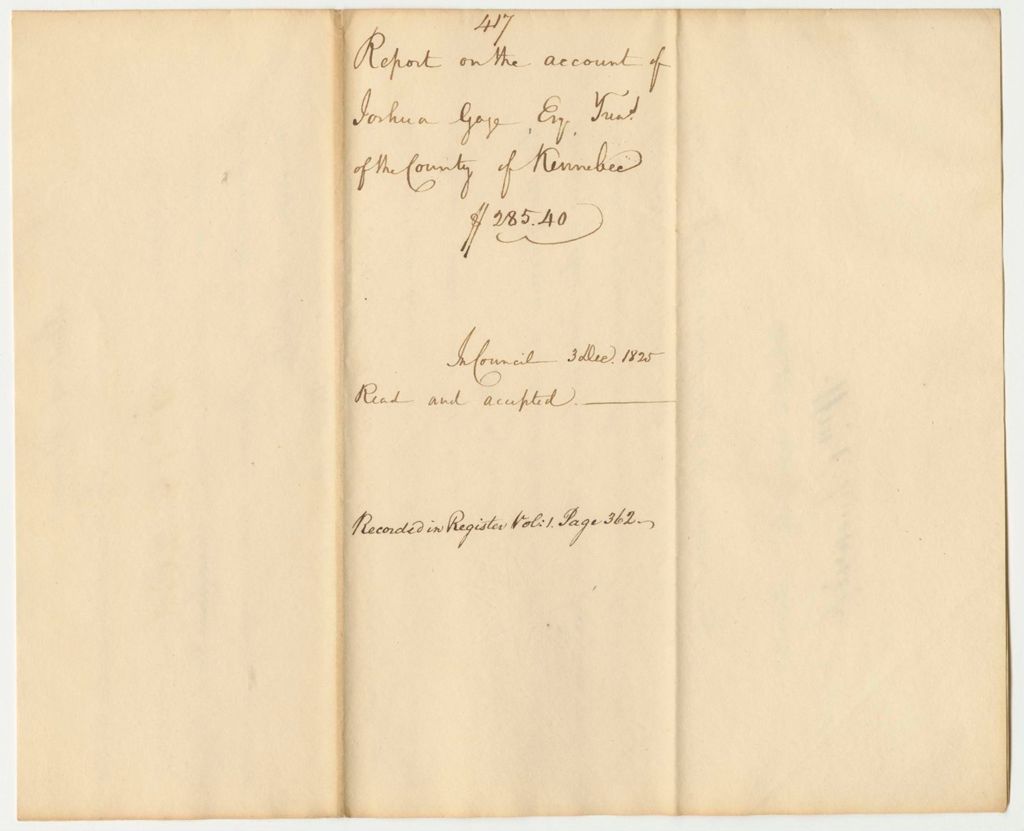 417
Report on the account of
Joshua Gage, Esq, Treas.
of the County of Kennebec
$285.40
In Council 3 Dec. 1825
Read and accepted.
Recorded in Register Vol: 1. Page 362